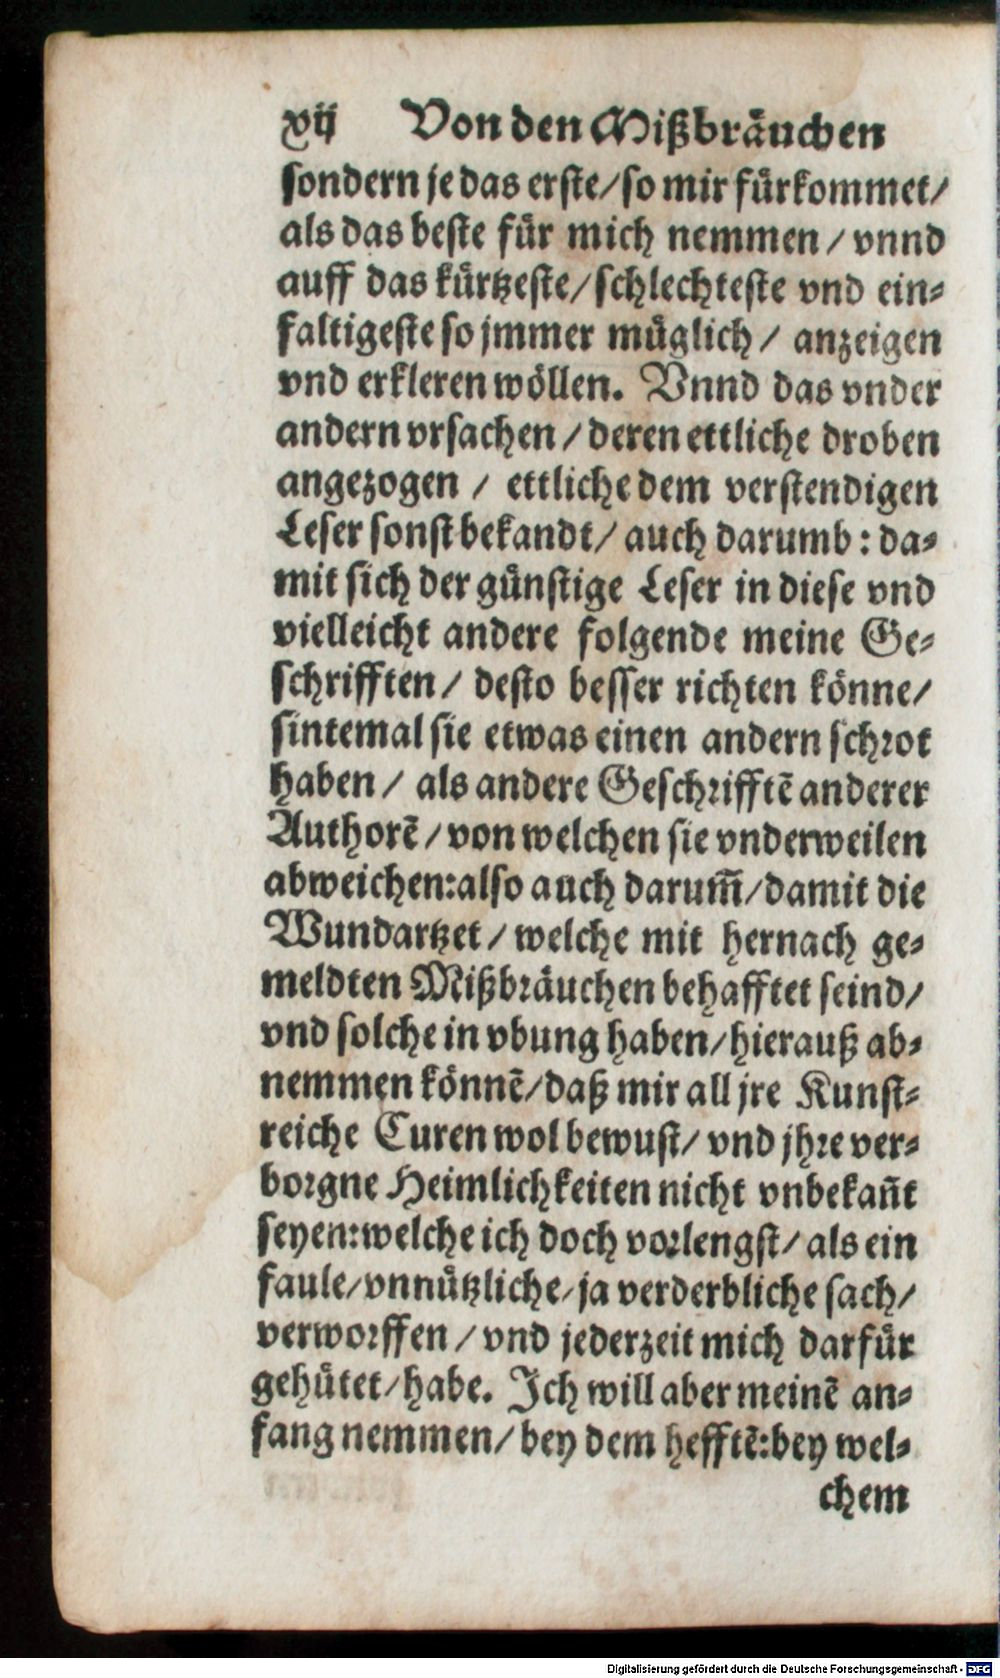 xij Von den Mißbräuchen
sondern je das erste/ so mir fürkommet/
als das beste für mich nemmen / vnnd
auff das kürtzeste/ schlechteste vnd ein-
faltigeste so jmmer müglich / anzeigen
vnd erkleren wöllen. Vnnd das vnder
andern vrsachen / deren ettliche droben
angezogen / ettliche dem verstendigen
Leser sonst bekandt/ auch darumb: da-
mit sich der günstige Leser in diese vnd
vielleicht andere folgende meine Ge-
schrifften/ desto besser richten könne/
sintemal sie etwas einen andern schrot
haben / als andere Geschrifftē anderer
Authorē / von welchen sie vnderweilen
abweichen: also auch darum̄/ damit die
Wundartzet / welche mit hernach ge-
meldten Mißbräuchen behafftet seind/
vnd solche in vbung haben/ hierauß ab-
nemmen könnē/ daß mir all jre Kunst-
reiche Curen wol bewust/ vnd jhre ver-
borgne Heimlichkeiten nicht vnbekan̄t
seyen: welche ich doch vorlengst/ als ein
faule/ vnnützliche/ ja verderbliche sach/
verworffen / vnd jederzeit mich darfür
gehütet/ habe. Ich will aber meinē an-
fang nemmen/ bey dem hefftē: bey wel-
chem
Digitalisierung gefördert durch die Deutsche Forschungsgemeinschaft - DFG